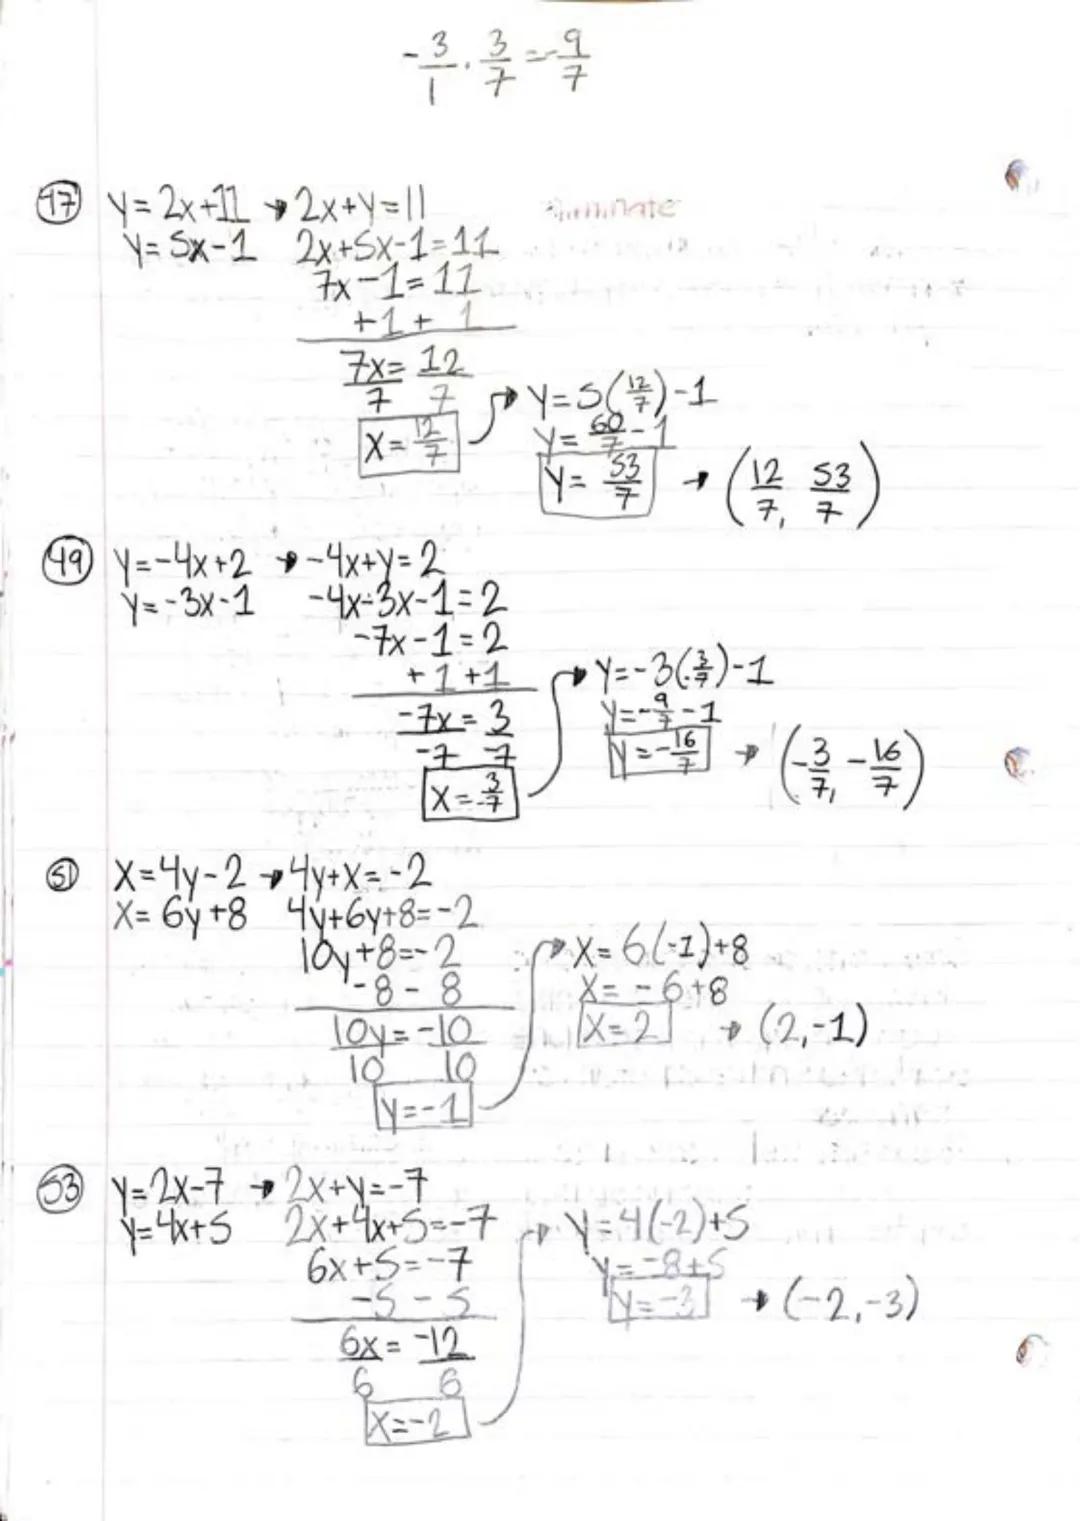 -3/1 · 3/7 = -9/7
Eliminate
47 y=2x+11 → 2x+y=11
y=5x-1 2x+5x-1=11
7x-1=11
+1 + 1
7x = 12
7 7
x = 12/7 → y=5(12/7)-1
y= 60/7 - 1
y= 53/7 → (12/7, 53/7)
49 y=-4x+2 → -4x+y=2
y=-3x-1 -4x-3x-1=2
-7x-1=2
+1 +1
-7x = 3
-7 -7
x = -3/7 → y=-3(-3/7)-1
y=-9/7-1
y=-16/7 → (-3/7, -16/7)
51 x=4y-2 → 4y+x=-2
x=6y+8 4y+6y+8=-2
10y+8=-2
-8 - 8
10y = -10
10 10
y=-1 → x= 6(-1)+8
x= -6+8
x=2 → (2,-1)
53 y=2x-7 → 2x+y=-7
y=4x+5 2x+4x+5=-7
6x+5=-7
-5 - 5
6x = -12
6 6
x=-2 → y=4(-2)+5
y=-8+5
y=-3 → (-2,-3)